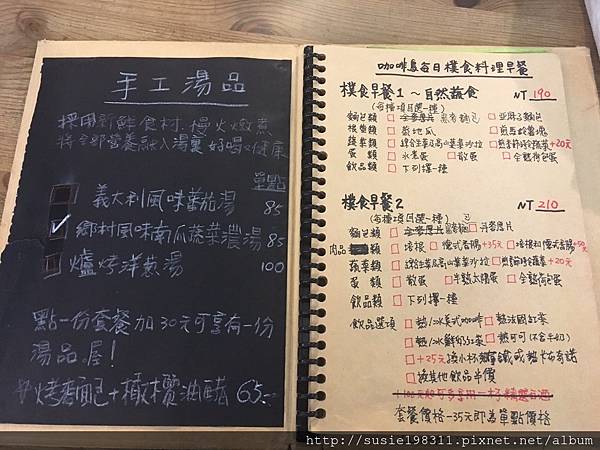 手工湯品
採用新鮮食材.慢火燉煮
將全部營養融入湯裏 好喝又健康
單點
義大利風味蕃茄湯 85
鄉村風味南瓜蔬菜濃湯 85
爐烤洋蔥湯 100
點一份套餐加30元可享有一份
湯品喔!
烤麵包+橄欖油醋 65
咖啡鳥每日樸食料理早餐
樸食早餐1 ~ 自然蔬食 NT 190
(各種項目選一種)
麵包類
根莖類 蒸地瓜
蔬菜類 +20元
蛋類 水煮蛋 散蛋 全熟荷包蛋
飲品類 下列擇一種
樸食早餐2 NT 210
(每種項目選一種)
麵包類
肉品類 德式香腸+35元
蔬菜類 +20元
蛋類 散蛋 半熟太陽蛋 全熟荷包蛋
飲品類 下列擇一種
飲品選項 熱/冰美式咖啡 熱法國紅茶
熱/冰鮮奶紅茶 熱可可(不含牛奶)
+25元 換小杯熱拿鐵或熱卡布奇諾
換其他飲品半價
套餐價格-35元即為單點價格
http://susie198311.pixnet.net/album